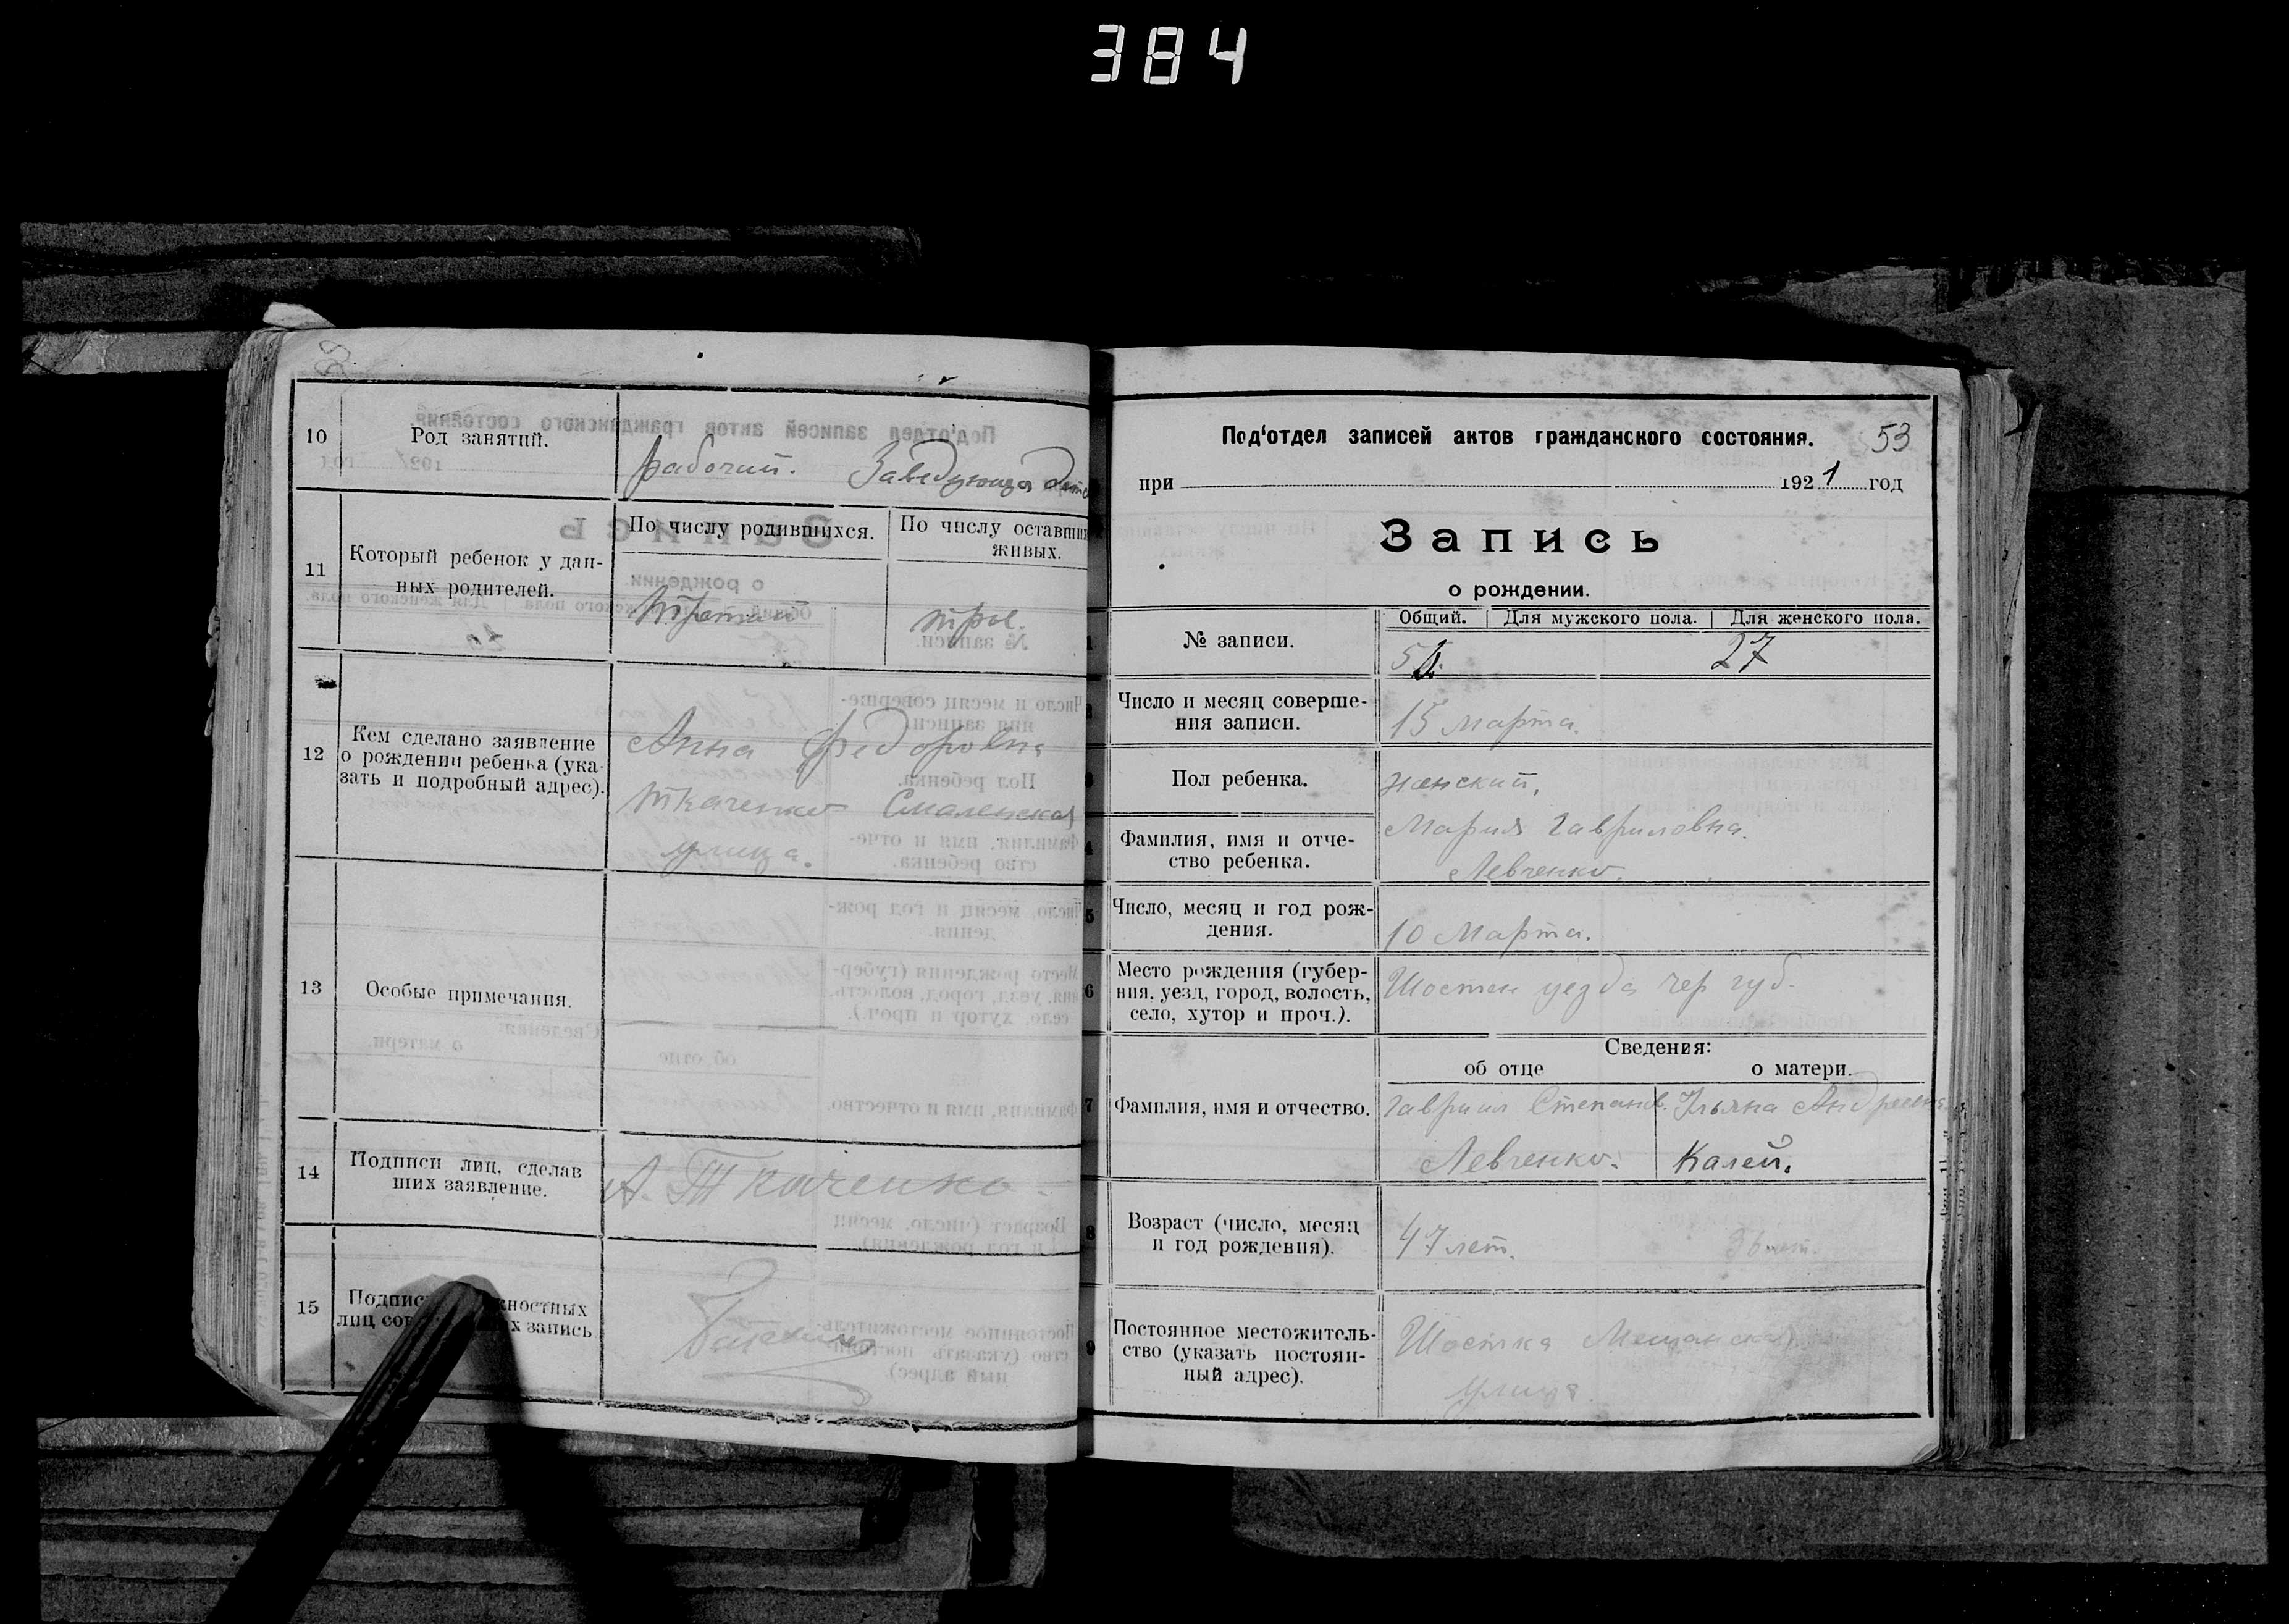 384
10
Род занятий.
рабочий. Заведующая
11
Который ребенок у дан-
ных родителей.
По числу родившихся.
По числу оставшихся
живых.
третий
трое.
12
Кем сделано заявление
о рождении ребенка (ука-
зать и подробный адрес).
Анна Федоровна
Ткаченко Смаленская
улица.
13
Особые примечания.
14
Подписи лиц, сделав
ших заявление.
А. Ткаченко
15
лиц
запись
Под‘отдел записей актов гражданского состояния.
53
при 1921 год
Запись
о рождении.
№ записи.
Общий. Для мужского пола. Для женского пола.
27
Число и месяц соверше-
ния записи.
15 Марта.
Пол ребенка.
женский.
4
Фамилия, имя и отче-
ство ребенка.
Мария Гавриловна.
Левченко.
5
Число, месяц и год рож-
дения.
10 Марта.
6
Место рождения (губер-
ния, уезд, город, волость,
село, хутор и проч.).
Шостен уезда чер губ.
Сведения:
об отце
о матери.
7
Фамилия, имя и отчество.
Гавриил Степанов. Ульяна Андреевна
Левченко. Калей.
8
Возраст (число, месяц
и год рождения).
47 лет.
36 лет.
9
Постоянное местожитель-
ство (указать постоян-
ный адрес).
Шостка Мещанская
улица